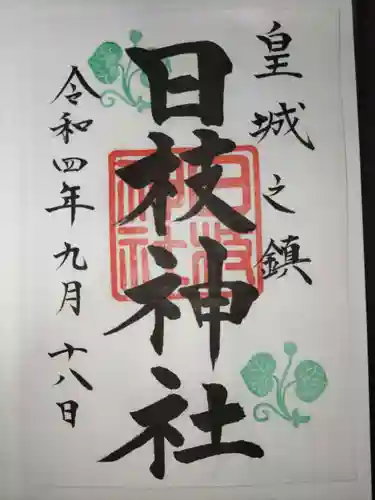 皇城之鎮
日枝神社
令和四年九月十八日
日枝神社